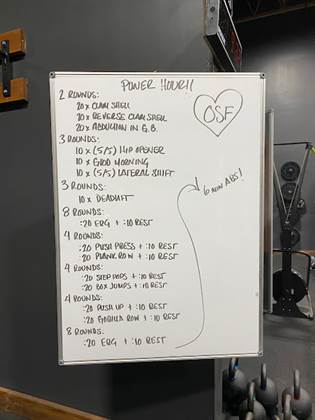 POWER HOUR!!
2 ROUNDS:
20 x CLAM SHELL
20 x REVERSE CLAM SHELL
20 x ABDUCTION IN G.B.
OSF
3 ROUNDS:
10 x (5/5) HIP OPENER
10 x GOOD MORNING
10 x (5/5) LATERAL SHIFT
3 ROUNDS:
10 x DEADLIFT
6 MIN ABS!
8 ROUNDS:
:20 ERG + :10 REST
4 ROUNDS:
:20 PUSH PRESS + :10 REST
:20 PLANK ROW + :10 REST
4 ROUNDS:
:20 STEP HOPS + :10 REST
:20 BOX JUMPS + :10 REST
4 ROUNDS:
:20 PUSH UP + :10 REST
:20 GORILLA ROW + :10 REST
8 ROUNDS:
:20 ERG + :10 REST